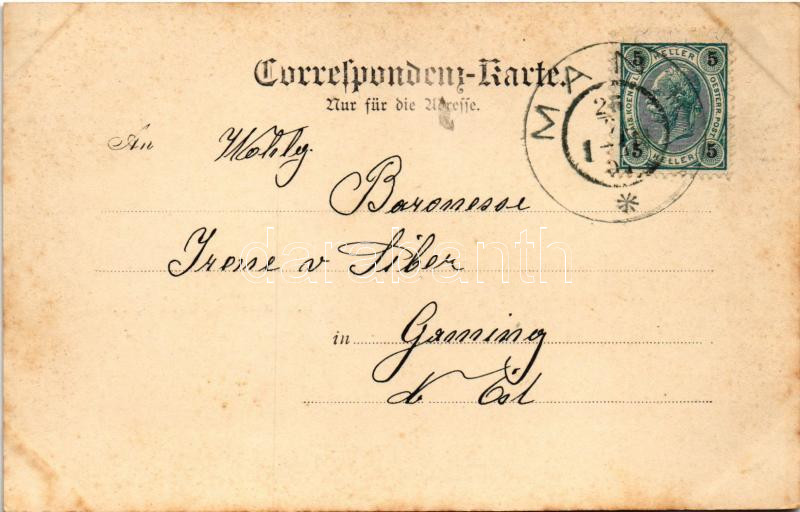 Correspondenz-Karte.
Nur für die Adresse.
An Wohlg.
Baronesse
Irene v Siber
in Gaming
N Öst
darabanth
MAN
1
5 HELLER 5
KAIS. KOENIGL. OESTERR. POST
5 HELLER 5